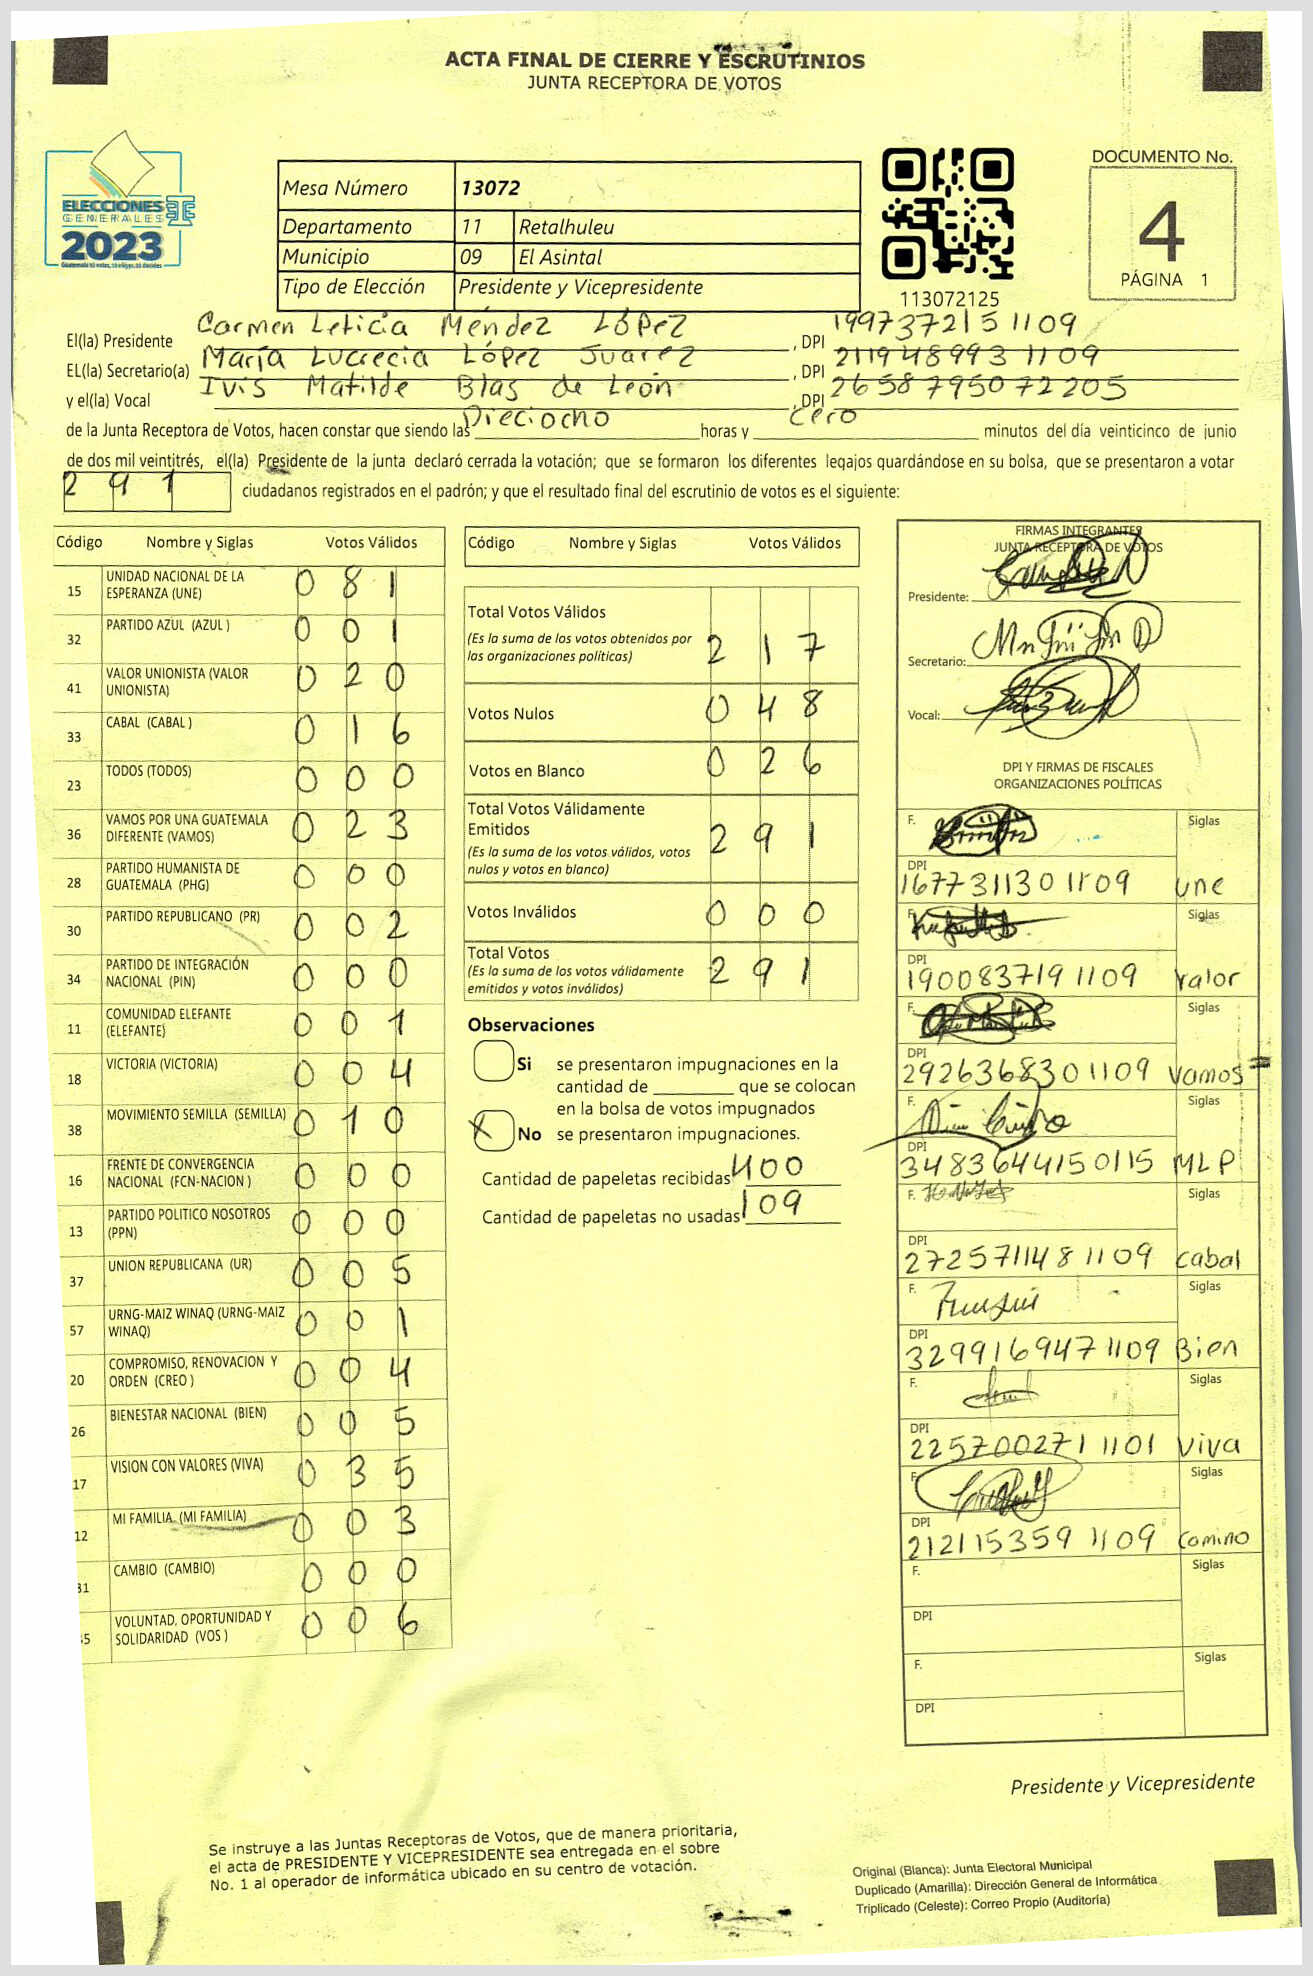 ACTA FINAL DE CIERRE Y ESCRUTINIOS
JUNTA RECEPTORA DE VOTOS
ELECCIONES
GENERALES
2023
Mesa Número 13072
Departamento 11 Retalhuleu
Municipio 09 El Asintal
Tipo de Elección Presidente y Vicepresidente
113072125
DOCUMENTO No.
4
PÁGINA 1
El(la) Presidente Carmen Leticia Méndez López, DPI 1997372151109
EL(la) Secretario(a) María Lucrecia López Juarez, DPI 2119489931109
y el(la) Vocal Ivis Matilde Blas de León, DPI 2658795072205
de la Junta Receptora de Votos, hacen constar que siendo las Dieciocho horas y cero minutos del día veinticinco de junio
de dos mil veintitrés, el(la) Presidente de la junta declaró cerrada la votación; que se formaron los diferentes legajos guardándose en su bolsa, que se presentaron a votar
291 ciudadanos registrados en el padrón; y que el resultado final del escrutinio de votos es el siguiente:
Código Nombre y Siglas Votos Válidos
15 UNIDAD NACIONAL DE LA ESPERANZA (UNE) 0 8 1
32 PARTIDO AZUL (AZUL ) 0 0 1
41 VALOR UNIONISTA (VALOR UNIONISTA) 0 2 0
33 CABAL (CABAL ) 0 1 6
23 TODOS (TODOS) 0 0 0
36 VAMOS POR UNA GUATEMALA DIFERENTE (VAMOS) 0 2 3
28 PARTIDO HUMANISTA DE GUATEMALA (PHG) 0 0 0
30 PARTIDO REPUBLICANO (PR) 0 0 2
34 PARTIDO DE INTEGRACIÓN NACIONAL (PIN) 0 0 0
11 COMUNIDAD ELEFANTE (ELEFANTE) 0 0 1
18 VICTORIA (VICTORIA) 0 0 4
38 MOVIMIENTO SEMILLA (SEMILLA) 0 1 0
16 FRENTE DE CONVERGENCIA NACIONAL (FCN-NACION ) 0 0 0
13 PARTIDO POLITICO NOSOTROS (PPN) 0 0 0
37 UNION REPUBLICANA (UR) 0 0 5
57 URNG-MAIZ WINAQ (URNG-MAIZ WINAQ) 0 0 1
20 COMPROMISO, RENOVACION Y ORDEN (CREO ) 0 0 4
26 BIENESTAR NACIONAL (BIEN) 0 0 5
17 VISION CON VALORES (VIVA) 0 3 5
12 MI FAMILIA (MI FAMILIA) 0 0 3
CAMBIO (CAMBIO) 0 0 0
VOLUNTAD, OPORTUNIDAD Y SOLIDARIDAD (VOS ) 0 0 6
Código Nombre y Siglas Votos Válidos
Total Votos Válidos
(Es la suma de los votos obtenidos por las organizaciones políticas) 2 1 7
Votos Nulos 0 4 8
Votos en Blanco 0 2 6
Total Votos Válidamente Emitidos
(Es la suma de los votos válidos, votos nulos y votos en blanco) 2 9 1
Votos Inválidos 0 0 0
Total Votos
(Es la suma de los votos válidamente emitidos y votos inválidos) 2 9 1
Observaciones
Si se presentaron impugnaciones en la
cantidad de ________ que se colocan
en la bolsa de votos impugnados
X No se presentaron impugnaciones.
Cantidad de papeletas recibidas 400
Cantidad de papeletas no usadas 109
FIRMAS INTEGRANTES
JUNTA RECEPTORA DE VOTOS
Presidente:
Secretario:
Vocal:
DPI Y FIRMAS DE FISCALES
ORGANIZACIONES POLÍTICAS
F. Siglas
DPI 1677311301109 une
F. Siglas
DPI 1900837191109 valor
F. Siglas
DPI 2926368301109 vamos
F. Siglas
DPI 3483644150115 MLP
F. Siglas
DPI 2725711481109 cabal
F. Siglas
DPI 3299169471109 Bien
F. Siglas
DPI 2257002711101 viva
F. Siglas
DPI 2121153591109 Camino
F. Siglas
DPI
F. Siglas
DPI
Presidente y Vicepresidente
Se instruye a las Juntas Receptoras de Votos, que de manera prioritaria,
el acta de PRESIDENTE Y VICEPRESIDENTE sea entregada en el sobre
No. 1 al operador de informática ubicado en su centro de votación.
Original (Blanca): Junta Electoral Municipal
Duplicado (Amarilla): Dirección General de Informática
Triplicado (Celeste): Correo Propio (Auditoría)